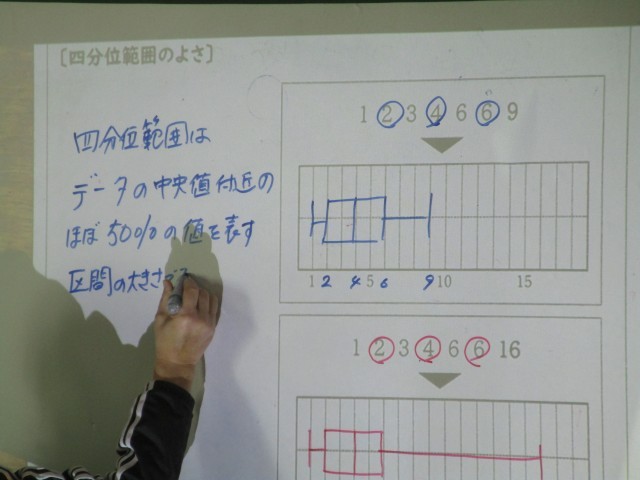 〔四分位範囲のよさ〕
四分位範囲は
データの中央値付近の
ほぼ50%の値を表す
区間の大きさ
1 2 3 4 6 6 9
1 2 4 5 6 9 10 15
1 2 3 4 6 6 16